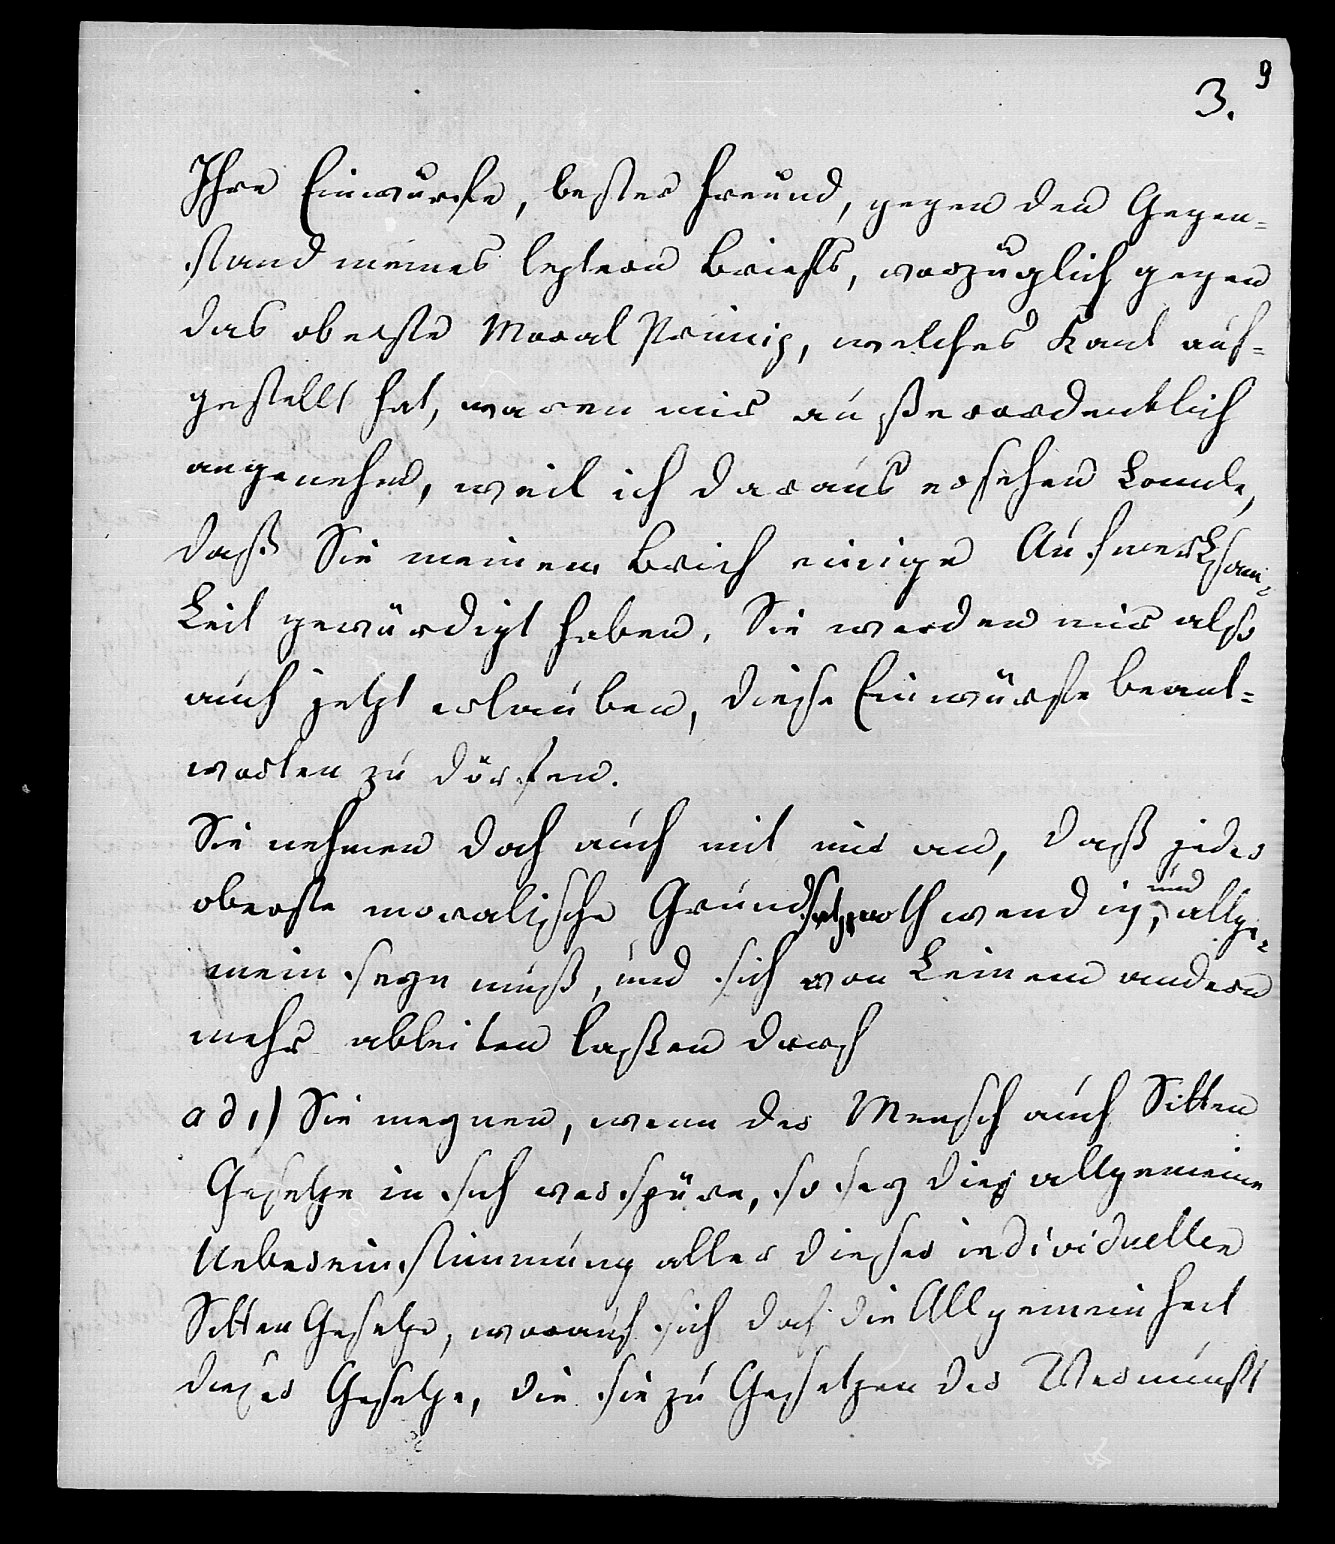 9
3.
Ihre Einwürfe, bester Freund, gegen den Gegen=
stand meines leztern Briefs, vorzüglich gegen
das oberste Moral Prinzip, welches Kant auf=
gestellt hat, waren mir außerordentlich
angenehm, weil ich daraus ersehen konnte,
daß Sie meinem Brief einige Aufmerksam=
keit gewürdigt haben. Sie werden mir also
auch jetzt erlauben, diese Einwürfe beant=
worten zu dörfen.
Sie nehmen doch auch mit mir an, daß jeder
oberste moralische Grundsatz nothwendig, und allge=
mein seyn muß, und sich von keinem andern
mehr ableiten laßen darf
ad 1) Sie meynen, wenn der Mensch auch Sitten
Gesetze in sich verspüre, so sey dies allgemeine
Uebereinstimmung aller dieser individuellen
Sitten Gesetze, worauf sich doch die Allgemeinheit
dieser Gesetze, die sie zu Gesetzen der Vernunft